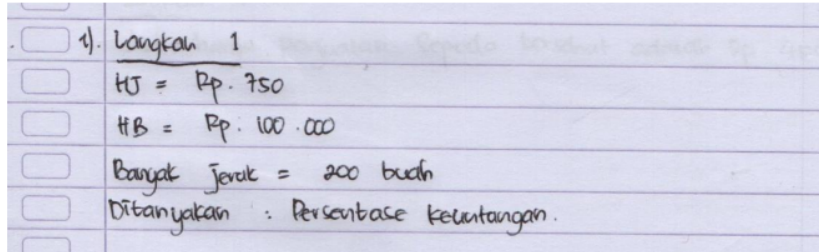 1). Langkah 1
HJ = Rp. 750
HB = Rp. 100.000
Banyak jeruk = 200 buah
Ditanyakan : Persentase keuntungan.